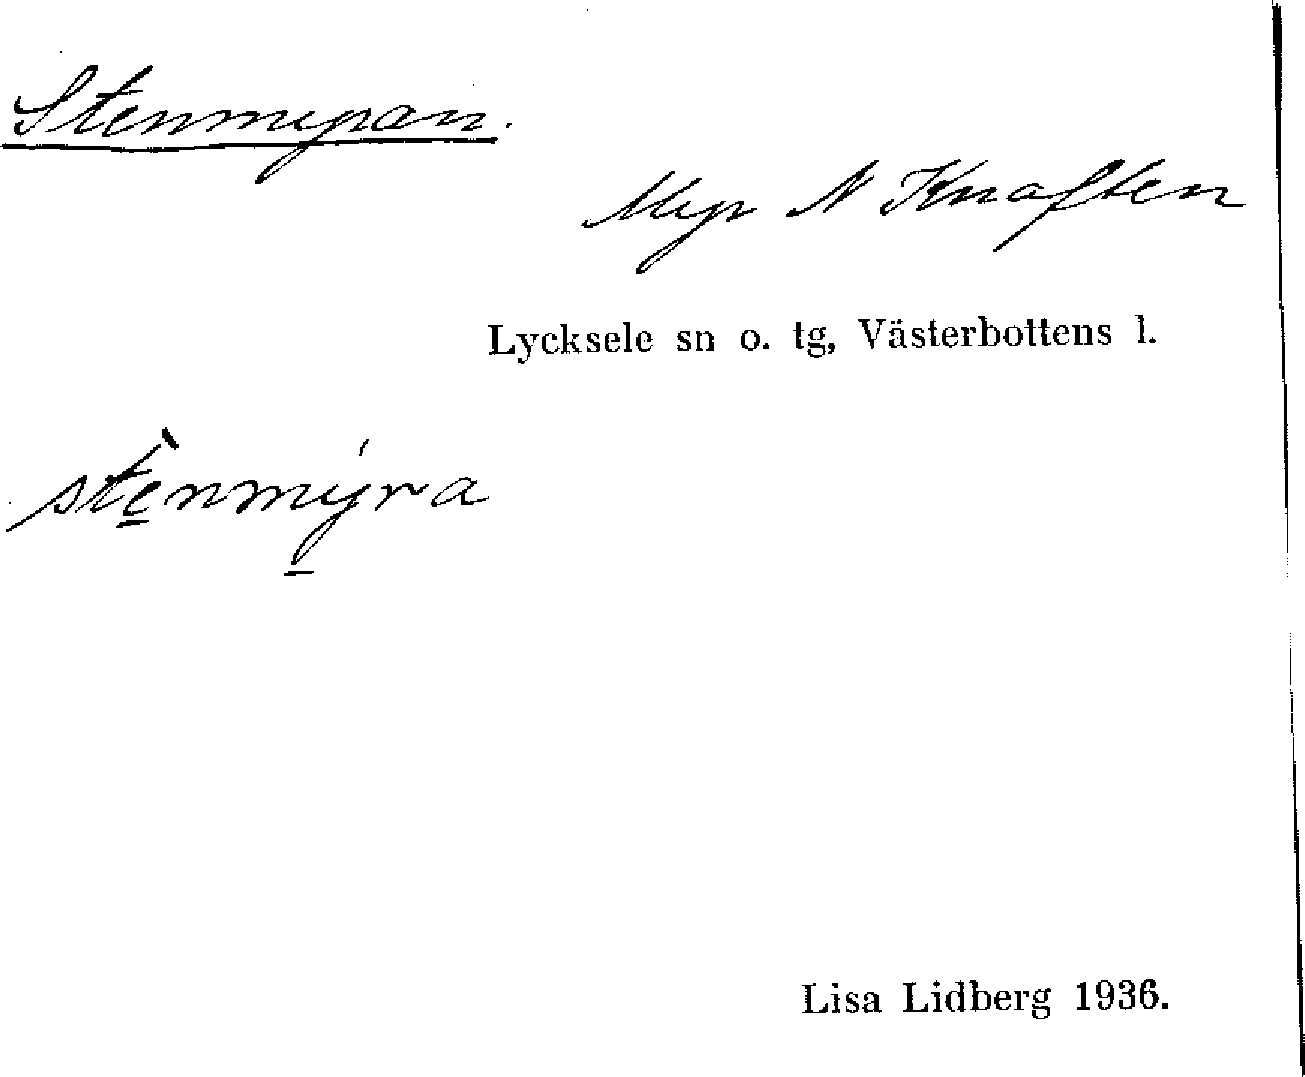 Stenmyran.
Myr N Knaften
Lycksele sn o. tg, Västerbottens l.
stè̱nmý̱ra
Lisa Lidberg 1936.